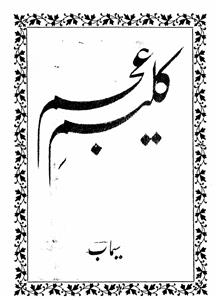 کلیمِ عجم
سیماب